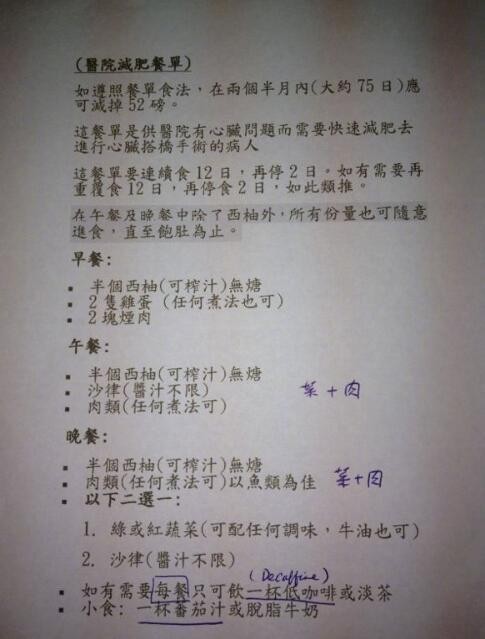 (醫院減肥餐單)
如遵照餐單食法，在兩個半月內(大約 75 日)應
可減掉 52 磅。
這餐單是供醫院有心臟問題而需要快速減肥去
進行心臟搭橋手術的病人
這餐單要連續食 12 日，再停 2 日。如有需要再
重覆食 12 日，再停食 2 日，如此類推。
在午餐及晚餐中除了西柚外，所有份量也可隨意
進食，直至飽肚為止。
早餐:
▪ 半個西柚(可榨汁)無糖
▪ 2 隻雞蛋 (任何煮法也可)
▪ 2 塊煙肉
午餐:
▪ 半個西柚(可榨汁)無糖
▪ 沙律(醬汁不限) 菜+肉
▪ 肉類(任何煮法可)
晚餐:
▪ 半個西柚(可榨汁)無糖
▪ 肉類(任何煮法可)以魚類為佳 菜+肉
▪ 以下二選一:
1. 綠或紅蔬菜(可配任何調味，牛油也可)
2. 沙律(醬汁不限)
(Decaffine)
▪ 如有需要每餐只可飲一杯低咖啡或淡茶
▪ 小食: 一杯番茄汁或脫脂牛奶